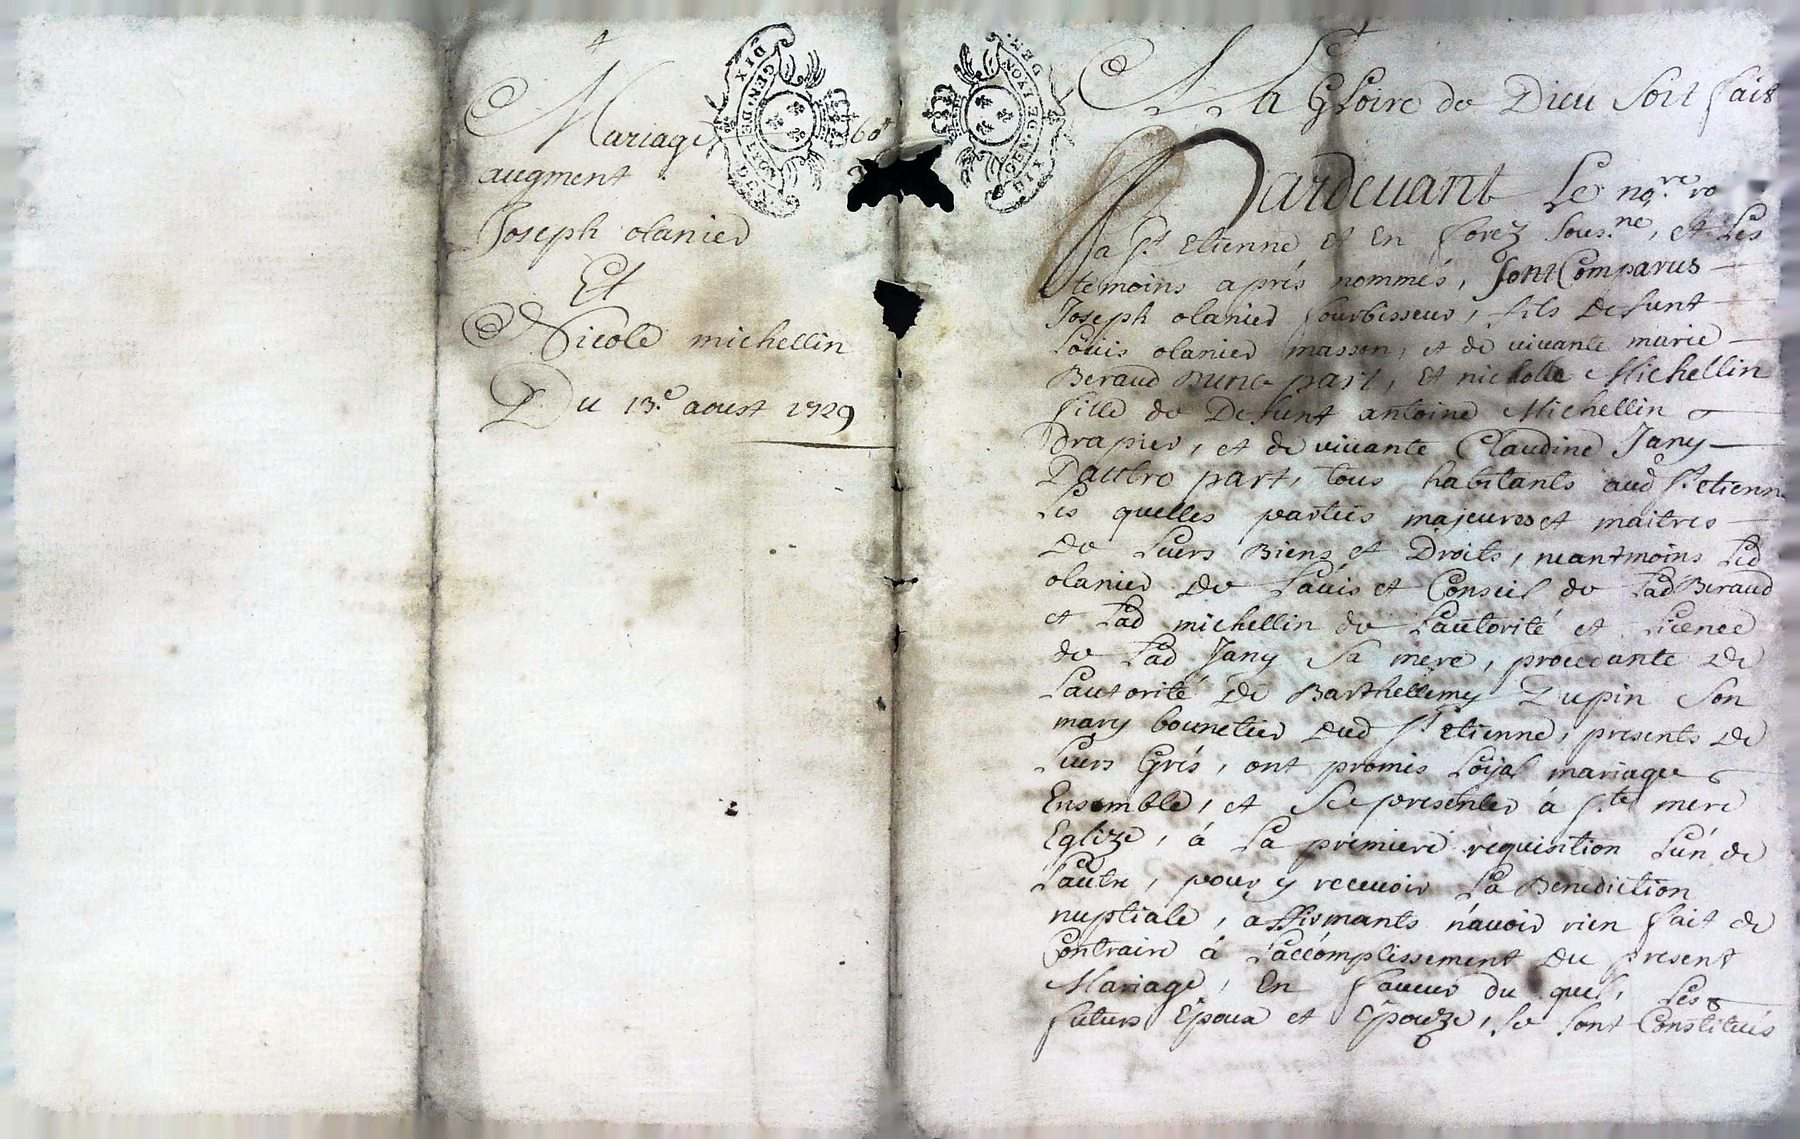 Mariage 60
augment
Joseph olanier
Et
Nicole michellin
Du 13.e aoust 1729
GEN. DE LYON
DIX DEN.
GEN. DE LYON
DIX DEN.
A La Gloire de Dieu soit fait
Pardevant Le no.re ro
a St. etienne et en forez sous.né, et Les
temoins aprés nommés, sont Comparus
Joseph olanier fourbisseur, fils defunt
Loüis olanier masson, et de vivante marie
Beraud Dune part, et nicolle Michellin
fille de Defunt antoine Michellin
Drapier, et de vivante Claudine Jany
Dautre part, tous habitants aud St. etienne
Les quelles parties majeures et maitres
de Leurs Biens et Droits, neantmoins Led
olanier de L'avis et Conseil de Lad Beraud
et Lad michellin de L'autorité et Licence
de Lad Jany sa mere, procedante de
L'autorité de Barthellemy Dupin son
mary bounetier dud St. etienne, presents de
Leurs Grés, ont promis Loÿal mariage
Ensemble, et se presenter à s.te mere
Eglize, á La premiere requisition L'un de
L'autre, pour y recevoir La Benediction
nuptiale, affirmants n'avoir rien fait de
Contraire á L'accomplissement du present
Mariage, En faveur du quel, Les
futurs Epoux et Epouze, se sont Constitués